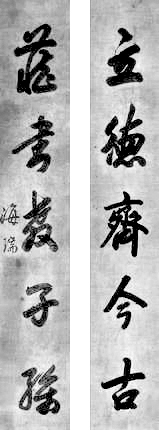 立德齊今古
藏書教子孫
海瑞